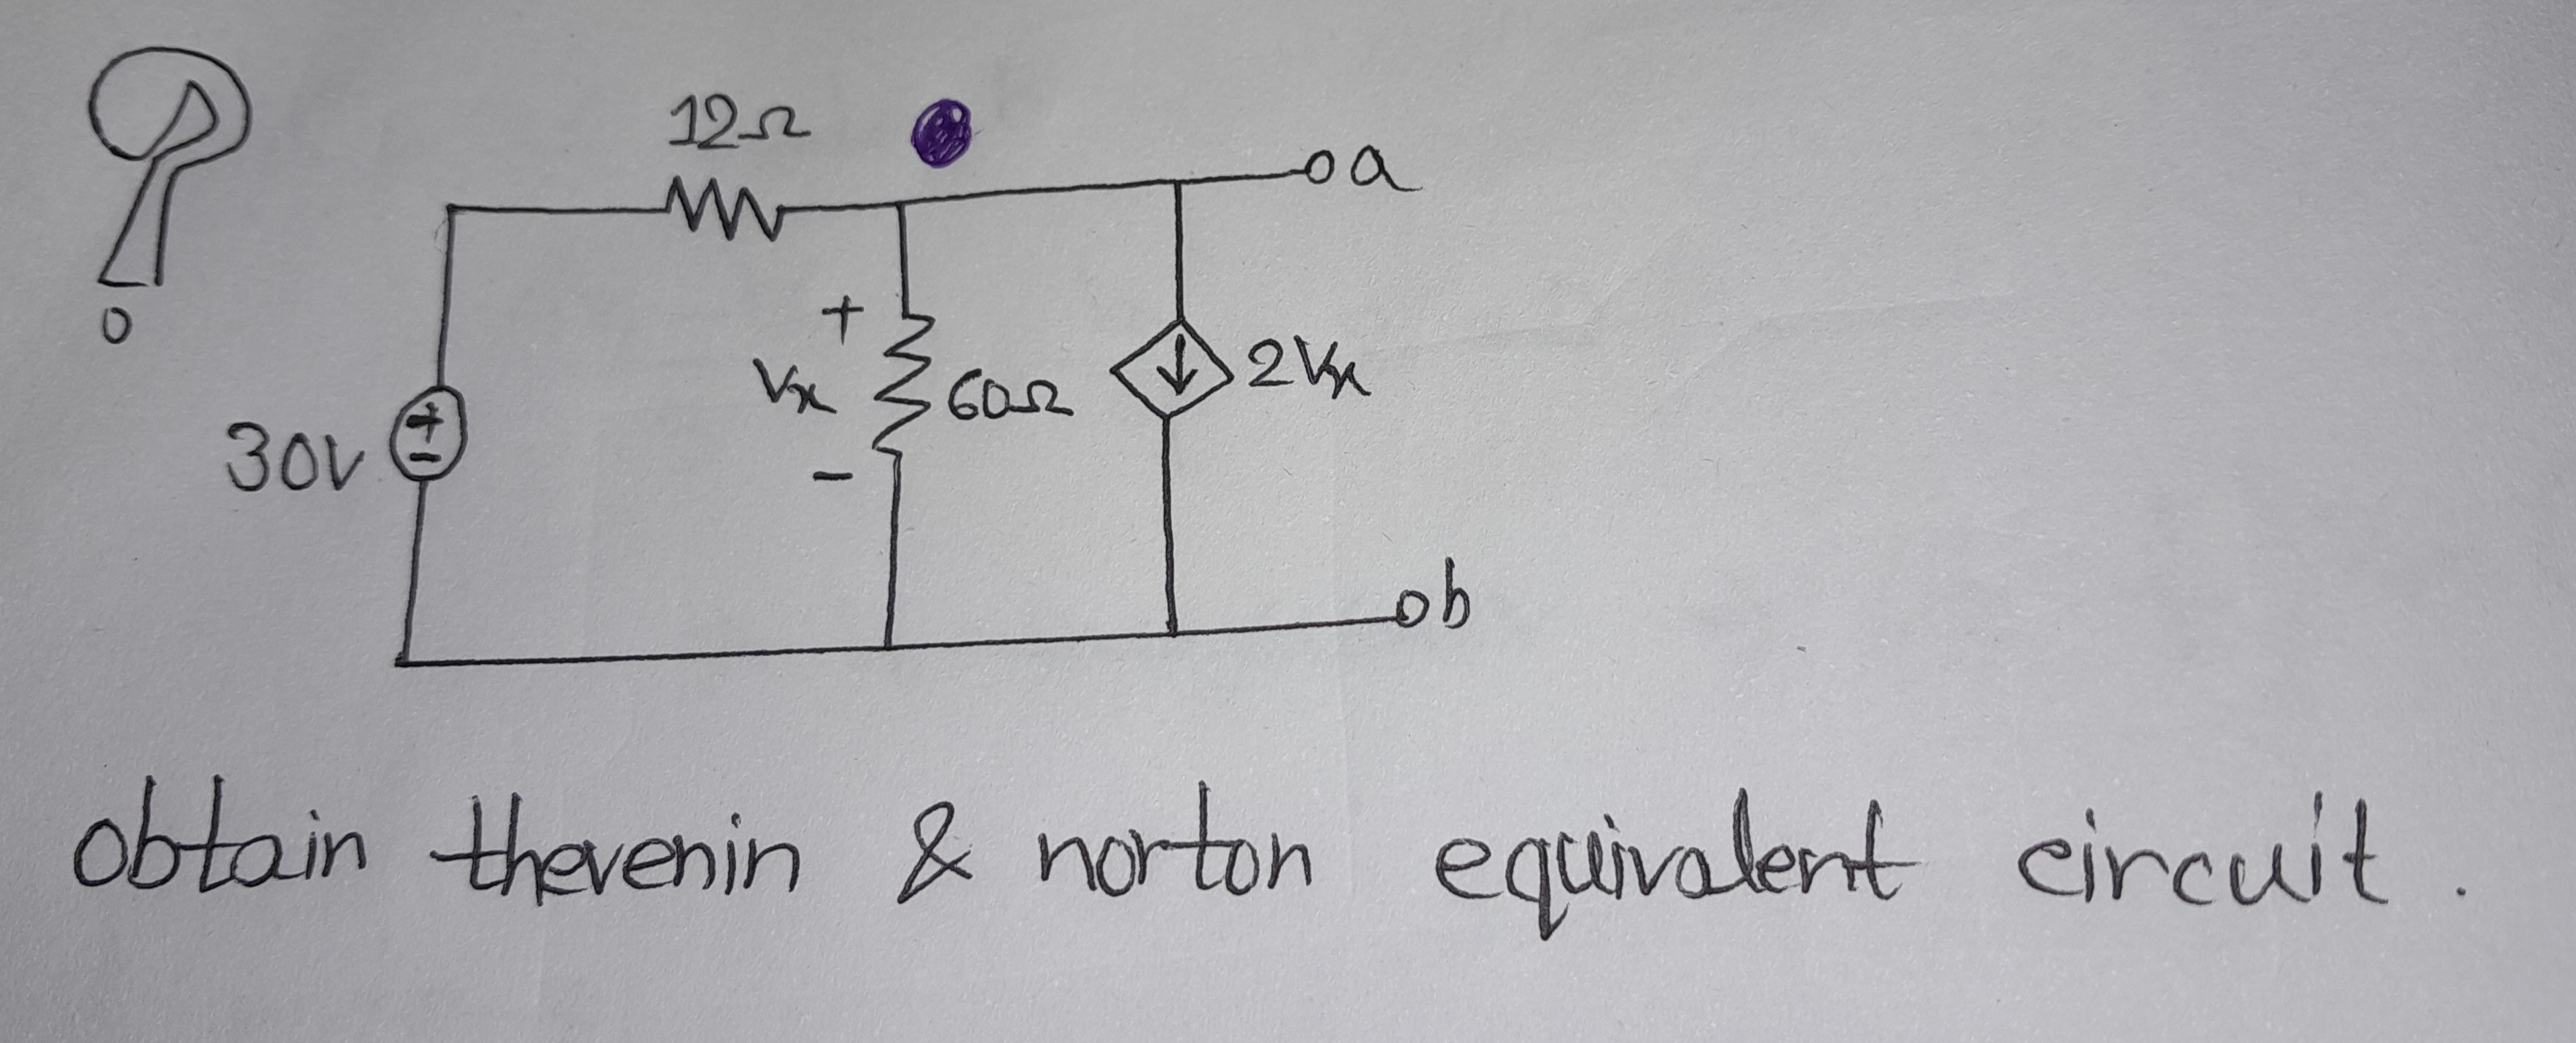 12Ω
a
+
Vx
60Ω
2Vx
+
-
30V
-
b
obtain thevenin & norton equivalent circuit.